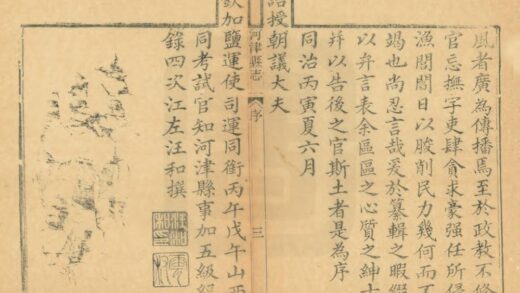 風者廣為傳播焉至於政教不修
官忘撫字吏肆貪求豪强任所侵
漁閭閻日以朘削民力幾何而不
竭也尚忍言哉爰於纂輯之暇綴
以弁言表余區區之心質之紳士
并以告後之官斯土者是為序
同治丙寅夏六月
誥授朝議大夫
欽加鹽運使司運同銜丙午戊午山西
同考試官知河津縣事加五級紀
錄四次江左汪和撰
河津縣志
序
三